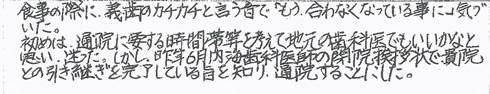 食事の際に、義歯のカチカチと言う音で「もう、合わなくなっている事に」気づ
いた。
初めは、通院に要する時間帯等を考えて地元の歯科医でもいいかなと
思い、迷った。しかし、昨年6月内海歯科医師の閉院挨拶状で貴院
との引き継ぎを完了している旨を知り、通院することにした。